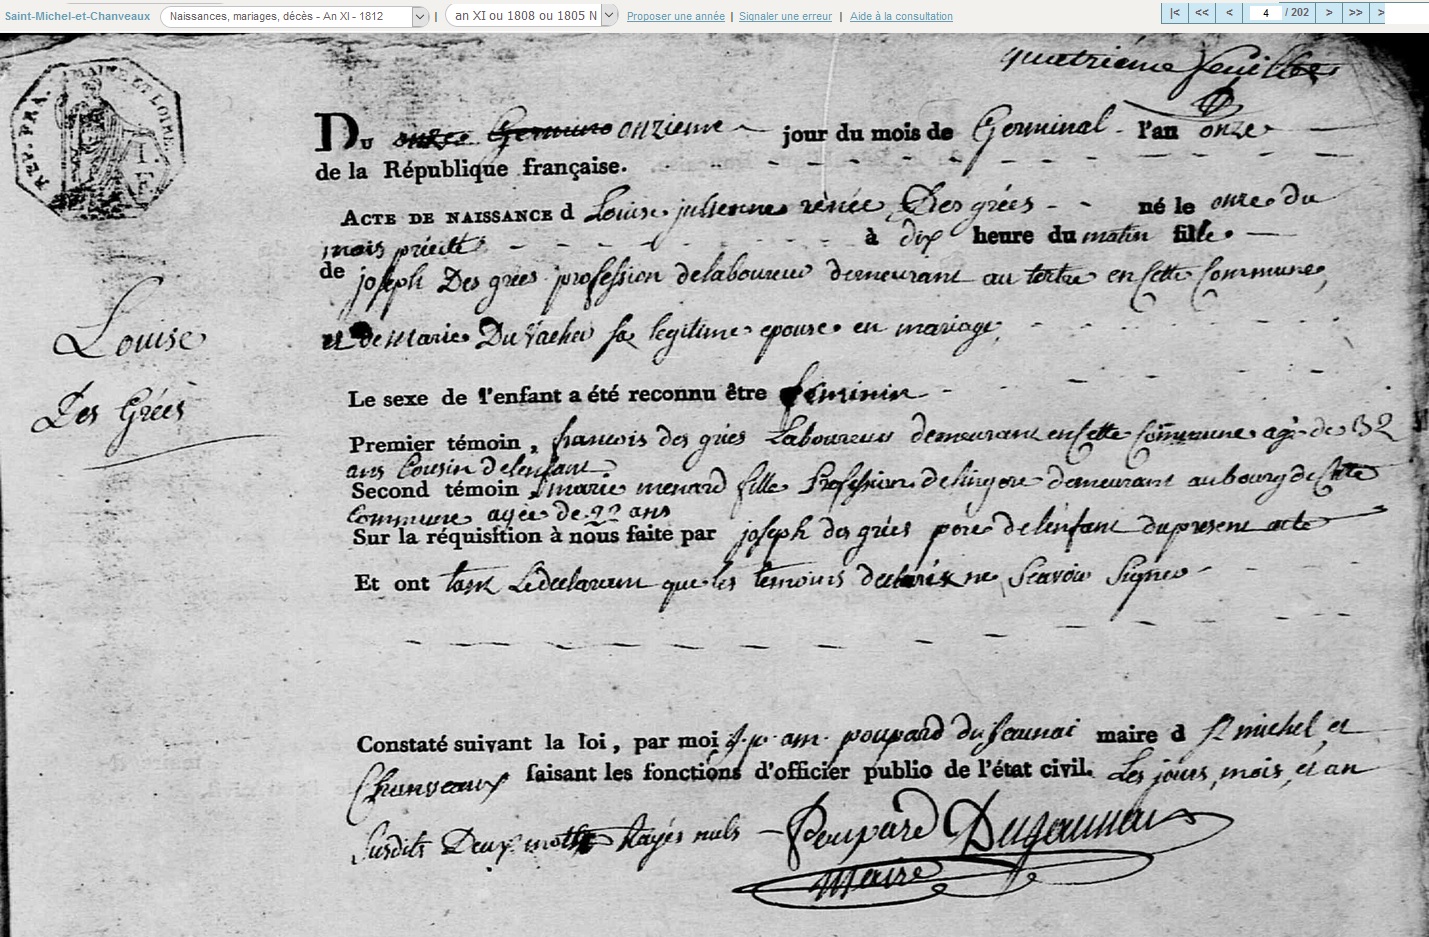 Saint-Michel-et-Chanveaux Naissances, mariages, décès - An XI - 1812 | an XI ou 1808 ou 1805 N | Proposer une année | Signaler une erreur | Aide à la consultation |< << < 4 / 202 > >> >
quatrieme feuillet
MAINE ET LOIRE
REP. FRA.
Du onze Germinal onzieme jour du mois de Germinal l'an onze
de la République française.
Acte de naissance d Louise julienne renée Des grées né le onze du
mois précité à dix heure du matin fille
de joseph Des grées profession de laboureur demeurant au tertre en Cette Commune,
et de Marie Du Vacher sa legitime epouse en mariage,
Louise
Des Grées
Le sexe de l'enfant a été reconnu être feminin
Premier témoin, francois des grées Laboureur demeurant en Cette Commune agé de 32
ans Cousin de lenfant
Second témoin, marie menard fille Profession de lingere demeurant au bourg de Cette
Commune agée de 22 ans
Sur la réquisition à nous faite par joseph des grées pere de lenfant du present acte
Et ont tant Le declarant que les temoins declaré ne Scavoir Signer
Constaté suivant la loi, par moi poupard du jaunai maire d St michel et
Chanveaux faisant les fonctions d'officier public de l'état civil. Les jours, mois, et an
susdits Deux mots Rayés nuls Poupard Dujaunai
Maire